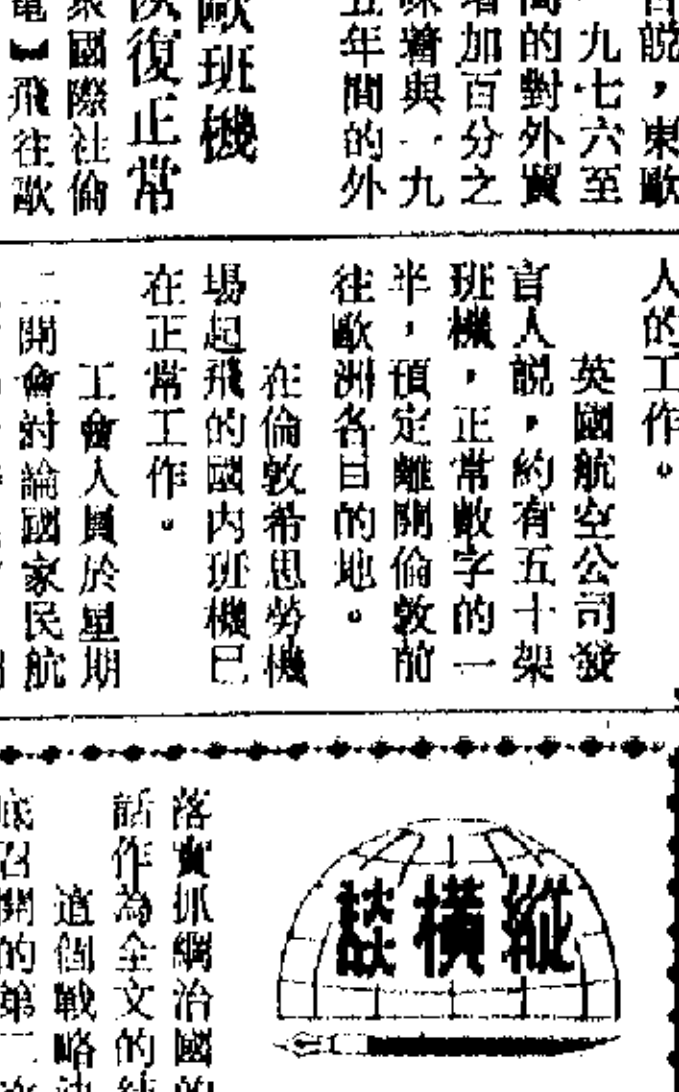 説，東歐
九七六至
的對外貿
加百分之
着與一九
年間的外
歐班機
恢復正常
國際社倫
飛往歐
人的工作。
英國航空公司發
言人説，約有五十架
班機，正常數字的一
半，預定離開倫敦前
往歐洲各目的地。
在倫敦希思勞機
場起飛的國內班機已
在正常工作。
工會人員於星期
二開會討論國家民航
縱橫談
落實抓綱治國的
話作為全文的
這個戰略決
底召開的第二次